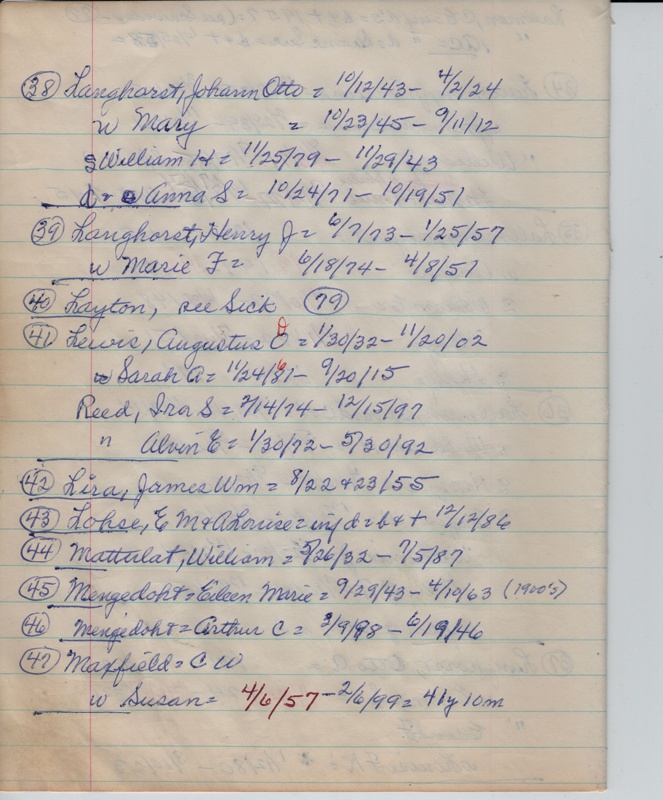 (38) Langhorst, Johann Otto = 10/12/43 - 4/2/24
w Mary = 10/23/45 - 9/11/12
s William H = 11/25/79 - 11/29/43
d = w Anna S = 10/24/71 - 10/19/51
(39) Langhorst, Henry J = 6/7/73 - 1/25/57
w Marie F = 6/18/74 - 4/8/51
(40) Layton, see Sick (79)
(41) Lewis, Augustus D = 1/30/32 - 11/20/02
w Sarah A = 11/24/61 - 9/20/15
Reed, Iror S = 2/14/74 - 12/15/97
" Alvin E = 1/30/72 - 5/30/92
(42) Lira, James Wm = 8/22 & 23/55
(43) Lohse, E M & A Louise = inf d = b & t 12/12/86
(44) Mattulat, William = 5/26/32 - 7/5/87
(45) Mengedoht = Eileen Marie = 9/29/43 - 4/10/63 (1900's)
(46) Mengedoht = Arthur C = 3/9/98 - 6/19/46
(47) Maxfield = C W
w Susan = 4/6/57 - 2/6/99 = 41y 10m